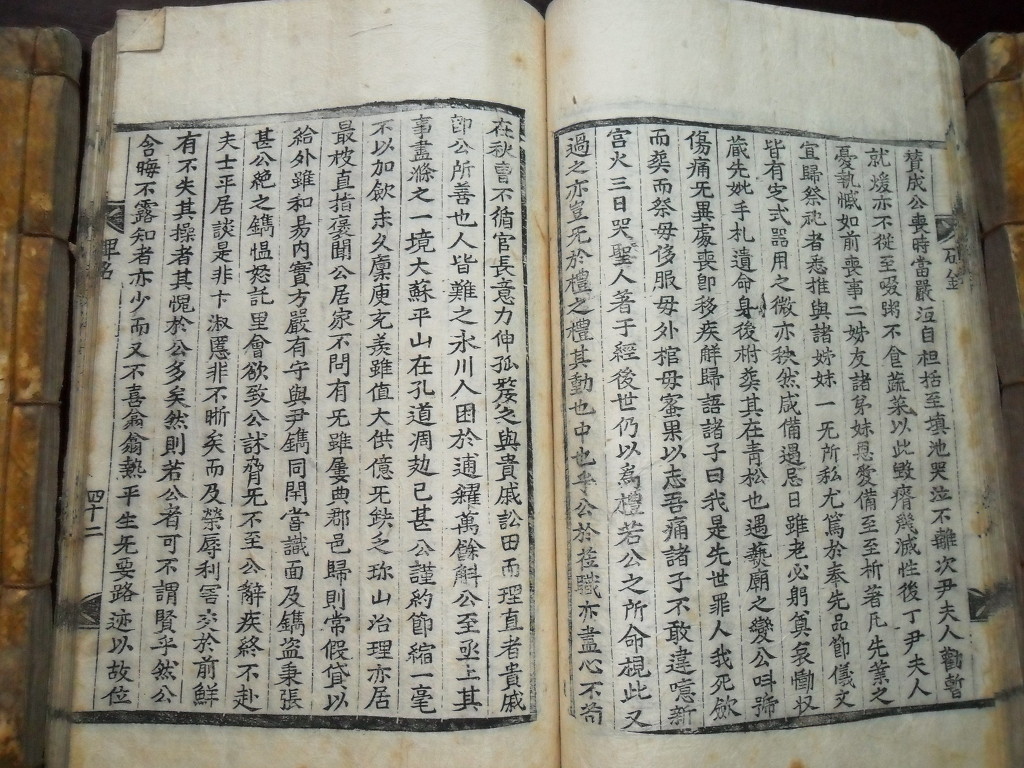 賛成公喪時當嚴冱自袒括至塡池哭泣不離次尹夫人勸暫
就煖亦不從至啜粥不食蔬菜以此毁瘠幾滅性後丁尹夫人
憂執慽如前喪事二姊友諸弟妹恩愛備至至析著凡先業之
宜歸祭祀者悉推與諸姊妹一旡所私尤篤於奉先品節儀文
皆有定式器用之微亦秩然咸備遇忌日雖老必躬奠哀慟収
葳先妣手札遺命身後祔葬其在靑松也遇燬廟之變公呌號
傷痛旡異處喪卽移疾觧歸語諸子曰我是先世罪人我死斂
而葬而祭毋侈服毋外棺毋蜜果以志吾痛諸子不敢違噫新
宮火三日哭聖人著于經後世仍以爲禮若公之所命覘此又
過之亦豈旡於禮之禮其動也中也乎公於莅職亦盡心不苟
在秋曺不循官長意力伸孤嫠之與貴戚訟田而理直者貴戚
卽公所善也人皆難之永川人困於逋糴萬餘斛公至亟上其
事盡滌之一境大蘇平山在孔道凋効已甚公謹約節縮一毫
不以加斂未久廩庾充羡雖値大供億旡缺乏珎山治理亦居
最棱直指褒聞公居家不問有旡雖屢典郡邑歸則常假貸以
給外雖和昜内實方嚴有守與尹鑴同閈嘗識面及鑴盜秉張
甚公絶之鑴愠怒託里會欲致公訹脅旡不至公辭疾終不赴
夫士平居談是非卞淑慝非不晣矣而及榮辱利害交於前鮮
有不失其操者其愧於公多矣然則若公者可不謂賢乎然公
含晦不露知者亦少而又不喜翕翕熱平生旡要路迹以故位
碑銘
四十二